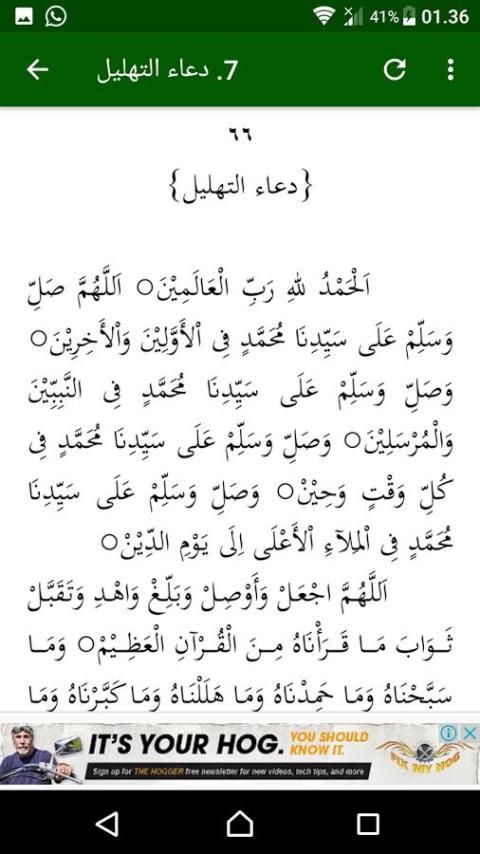 41% 01.36
7. دعاء التهليل
٦٦
{دعاء التهليل}
اَلْحَمْدُ للهِ رَبِّ الْعَالَمِيْنَ○ اَللَّهُمَّ صَلِّ
وَسَلِّمْ عَلَى سَيِّدِنَا مُحَمَّدٍ فِى اْلأَوَّلِيْنَ وَاْلأَخِرِيْنَ○
وَصَلِّ وَسَلِّمْ عَلَى سَيِّدِنَا مُحَمَّدٍ فِى النَّبِيِّيْنَ
وَالْمُرْسَلِيْنَ○ وَصَلِّ وَسَلِّمْ عَلَى سَيِّدِنَا مُحَمَّدٍ فِى
كُلِّ وَقْتٍ وَحِيْنْ○ وَصَلِّ وَسَلِّمْ عَلَى سَيِّدِنَا
مُحَمَّدٍ فِى اْلمِلآءِ اْلأَعْلَى اِلَى يَوْمِ الدِّيْنْ○
اَللَّهُمَّ اجْعَلْ وَأَوْصِلْ وَبَلِّغْ وَاهْدِ وَتَقَبَّلْ
ثَوَابَ مَا قَرَأْنَاهُ مِنَ الْقُرْآنِ الْعَظِيْمْ○ وَمَا
سَبَّحْنَاهُ وَمَا حَمِدْنَاهُ وَمَا هَلَلْنَاهُ وَمَا كَبَّرْنَاهُ وَمَا
IT'S YOUR HOG. YOU SHOULD KNOW IT.
Sign up for THE HOGGER free newsletter for new videos, tech tips, and more
FIX MY HOG